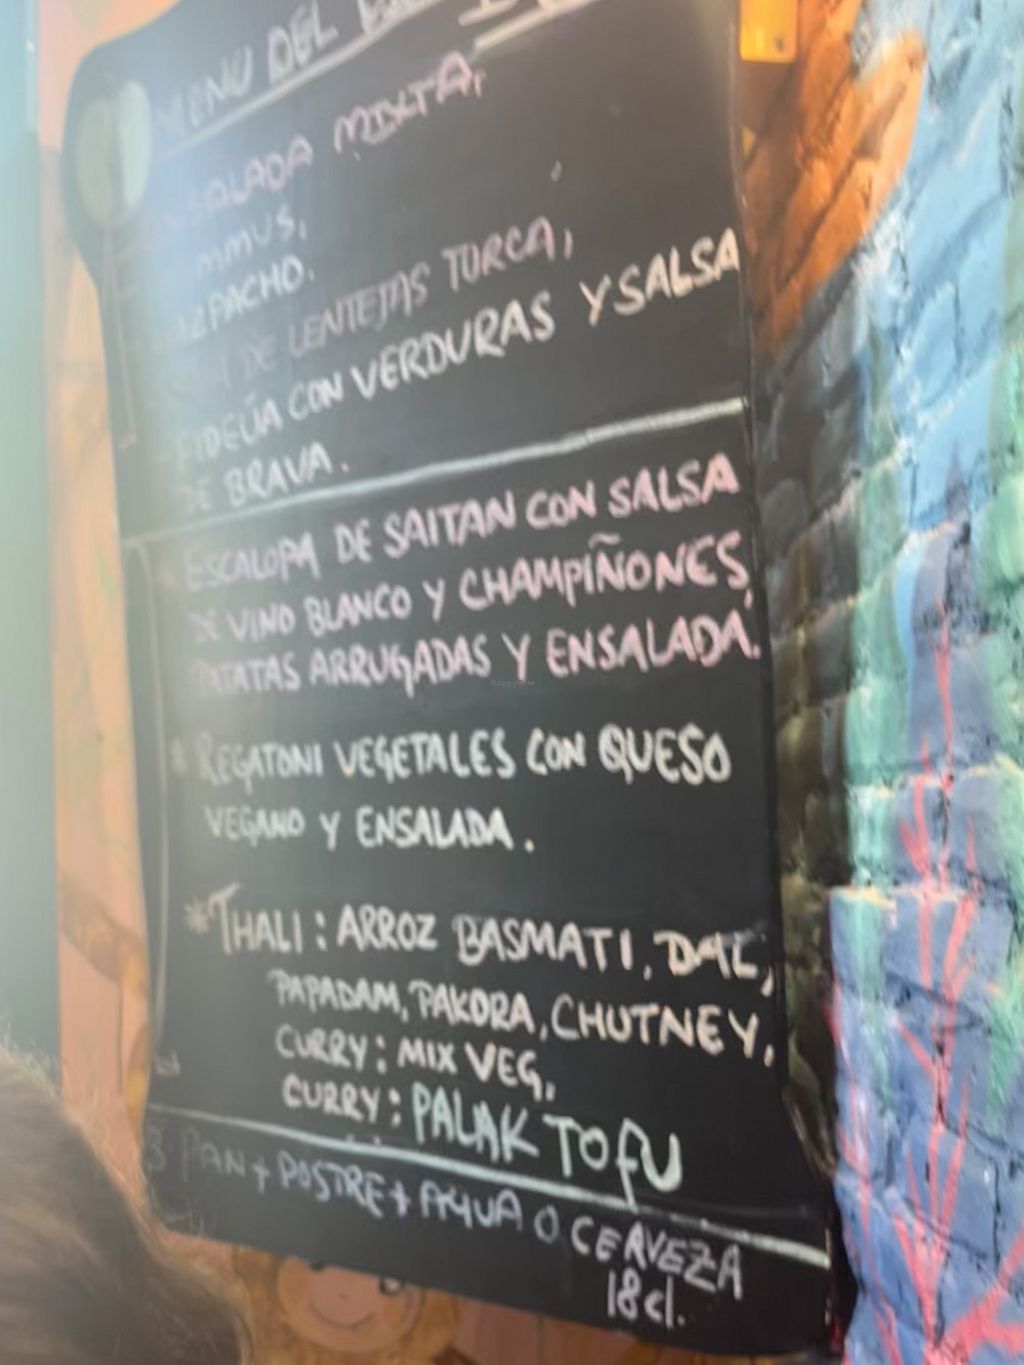 MENU DEL
ENSALADA MIXTA,
HUMMUS,
GAZPACHO.
DE LENTEJAS TURCA,
FIDEÚA CON VERDURAS Y SALSA
DE BRAVA.
* ESCALOPA DE SAITAN CON SALSA
DE VINO BLANCO Y CHAMPIÑONES,
PATATAS ARRUGADAS Y ENSALADA.
* REGATONI VEGETALES CON QUESO
VEGANO Y ENSALADA.
* THALI: ARROZ BASMATI, DAL,
PAPADAM, PAKORA, CHUTNEY,
CURRY: MIX VEG,
CURRY: PALAK TOFU
PAN + POSTRE + AQUA O CERVEZA
18cl.